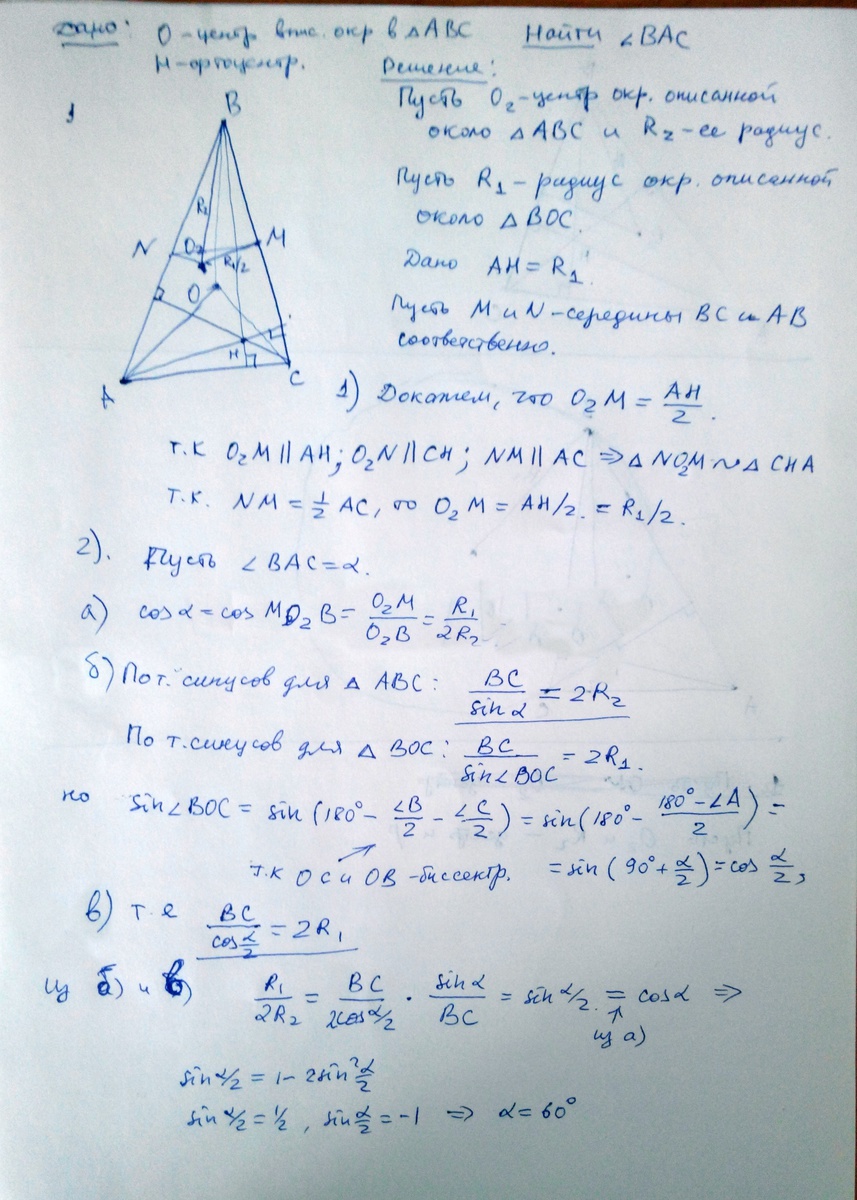 Дано: О-центр впис. окр в △ABC Найти ∠BAC
H-ортоцентр. Решение:
Пусть O₂-центр окр. описанной
около △ABC и R₂-ее радиус.
Пусть R₁-радиус окр. описанной
около △BOC.
Дано AH = R₁
Пусть M и N-середины BC и AB
соответственно.
B
R₂
N O₂ M
R₁/2
O
H
A C
1) Докажем, что O₂M = AH/2.
т.к O₂M || AH; O₂N || CH; NM || AC ⇒ △NO₂M ~ △CHA
т.к. NM = 1/2 AC, то O₂M = AH/2. = R₁/2.
2). Пусть ∠BAC = α.
а) cos α = cos MO₂B = O₂M/O₂B = R₁/2R₂
б) По т. синусов для △ABC: BC/sin α = 2R₂
По т. синусов для △BOC: BC/sin∠BOC = 2R₁.
но sin∠BOC = sin (180° - ∠B/2 - ∠C/2) = sin(180° - 180°-∠A/2) =
т.к OC и OB -биссектр. = sin (90° + α/2) = cos α/2,
в) т.е BC/cos α/2 = 2R₁
из б) и в) R₁/2R₂ = BC/2cos α/2 · sin α/BC = sin α/2 = cos α ⇒
↑
из а)
sin α/2 = 1 - 2sin² α/2
sin α/2 = 1/2, sin α/2 = -1 ⇒ α = 60°